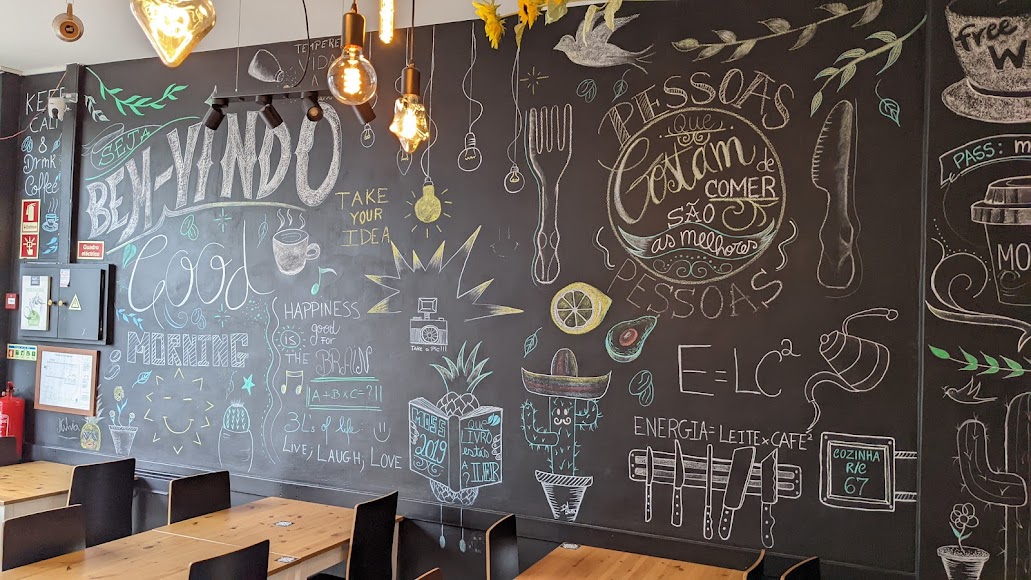 KEEP
CALM
&
Drink
Coffee
TEMPERE
VIDA
SEJA
BEM-VINDO
Good
MORNING
TAKE
YOUR
IDEA
HAPPINESS
IS:
good
FOR
THE BRAIN
A+B×C=?!!
3Ls of life
LIVE; LAUGH; LOVE
TAKE A PIC!!!
MISS
2019
QUE
LIVRO
estás
A
LER
?
PESSOAS
que
Gostam de
COMER
SÃO
as melhores
PESSOAS
E=LC²
ENERGIA=LEITE×CAFÉ²
COZINHA
R/C
67
free
W
PASS: m
MO
Quadro
eléctrico